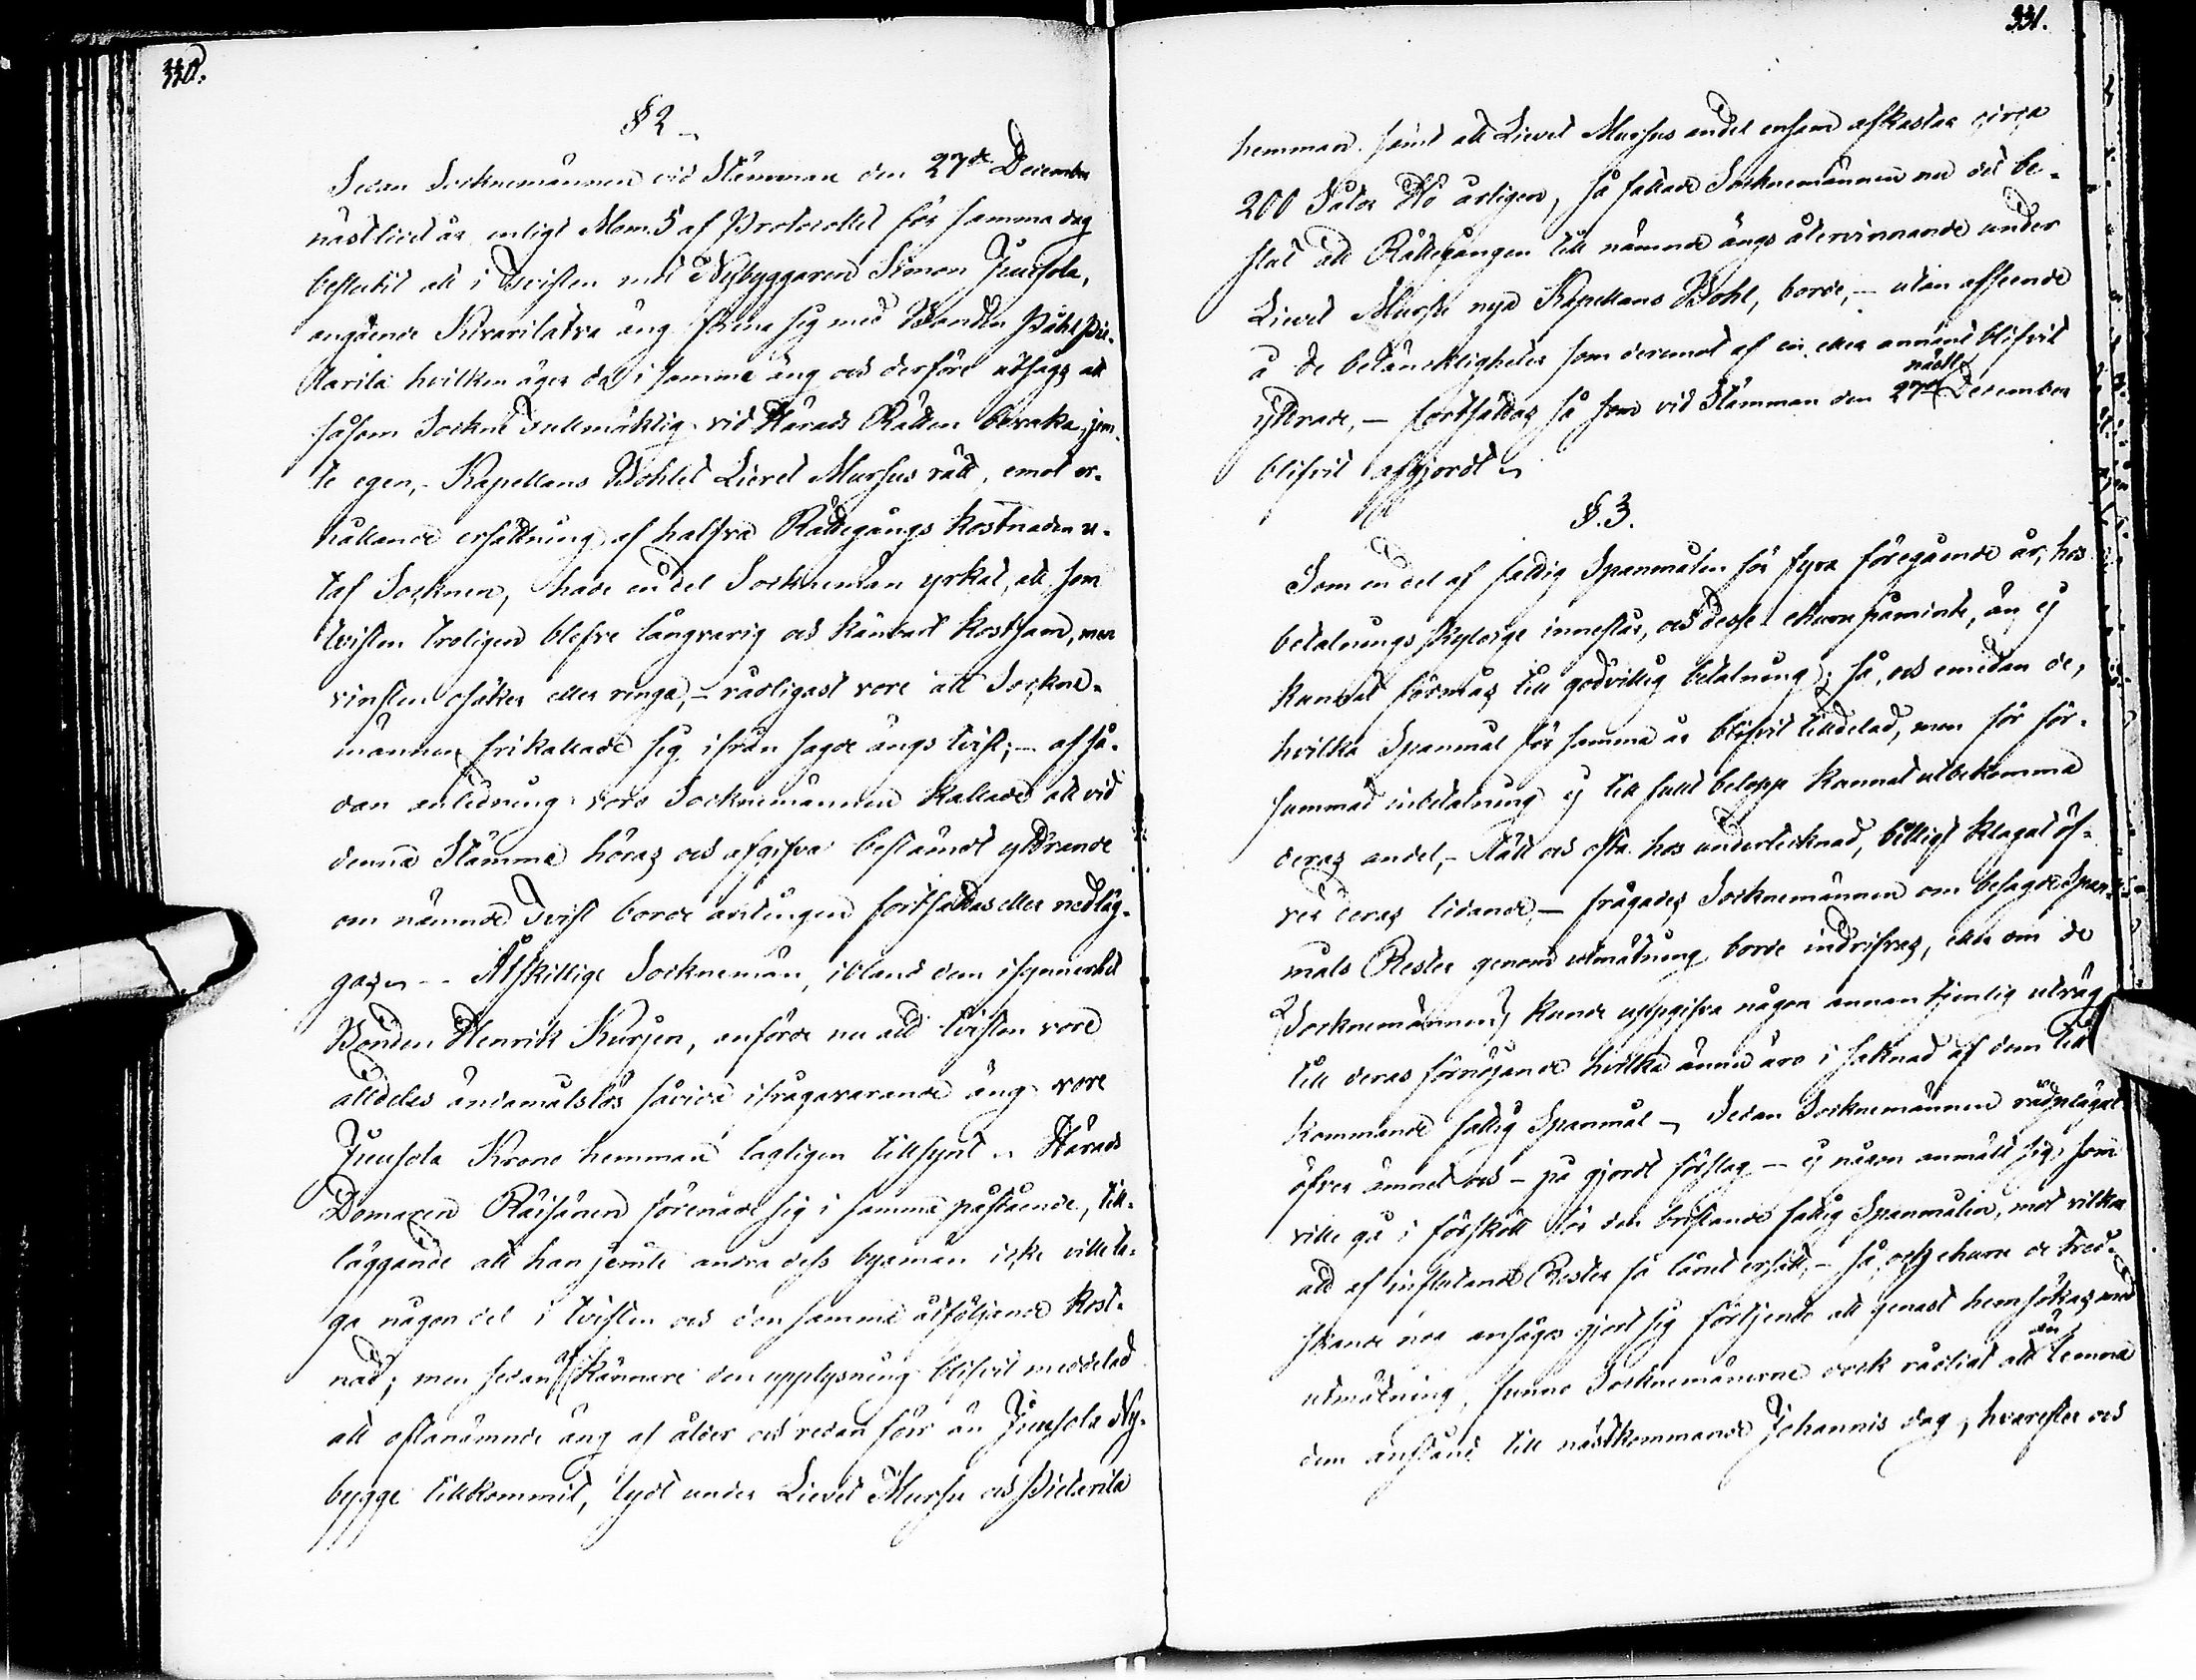 330.
§ 2
Sedan Socknemännen vid Stämman den 27de December
nästledet år enligt Mom. 5 af Protocollet för samma dag
beslutit att i Tvisten mot Nybyggaren Simon Juusola,
angående äng förena sig med Bonden Påhl Pie-
tarila hvilken äger del i samma äng och derföre utsågs att
såsom Sockne Fullmäktig vid Härads Rätten bevaka, jem-
te egen, Kapellans Bohlet Lievet Mursus rätt, emot er-
hållande ersättning af halfva Rättegångs Kostnaden u-
taf Socknen, hade en del Sockneman yrkat, att som
tvisten troligen blefve långvarig och känbart kostsam, men
vinsten osäker eller ringa, – rådligast vore att Sockne-
männen frikallade sig ifrån sagde ängs tvist; – af så-
dan anledning voro Socknemännen kallade att vid
denna Stämma höras och afgifva bestämdt yttrande
om nämnde Tvist borde antingen fortsättas eller nedläg-
gas. – Åtskillige Sockneman, ibland dem isynnerhet
Bonden Henrik Kurjen, anförde nu att tvisten vore
alldeles ändamålslös såvida ifrågavarande äng vore
Juusola Krono hemman lagligen tillsynt. Härads
Domaren Räisänen förenade sig i samma påstående, till-
läggande att han jemte andra dess byamän icke ville ta-
ga någon del i tvisten och den samma åtföljande kost-
nad; men sedan af Kännare den upplysning blifvit meddelad
att oftanämnde äng af ålder och redan förr än Juusola Ny-
bygge tillkommit, lydt under Lievet Mursu och Pietarila
331.
hemman samt att Lievet Mursus andel ensam afkastar circa
200 Såtar Hö årligen, så fattade Socknemännen nu det be-
slut att Rättegången till nämnde ängs återvinnande under
Lievet Mursu nya Kapellans Bohl, borde, – utan afseende
å de betänkligheter som deremot af en eller annan blifvit
yttrade, – fortsättas så som vid Stämman den 27de nästl. December
blifvit afgjordt.
§. 3.
Som en del af fattig Spanmålen för fyra föregående år, hos
betalnings skyldige innestår, och desse ehuru påminte, än ej
kunnat förmås till godvillig betalning; så, och emedan de,
hvilka Spanmål för samma år blifvit tilldelad, men för för-
summad inbetalning ej till fullt belopp kunnat utbekomma
deras andel, – tätt och ofta hos undertecknad, billigt klagat öf-
ver deras lidande, – frågades Socknemännen om besagde Span-
måls Rester genom utmätning borde indrifvas, eller om de
(Socknemännen) kunde uppgifva någon annan tjenlig utväg
till deras förnöjande hvilka ännu äro i saknad af dem till
kommande fattig Spanmål. Sedan Socknemännen rådplägat
öfver ämnet och – på gjordt förslag – ej någon anmält sig, som
ville gå i förskott för den bristande fattig Spanmålen, mot vilkor
att af influtande Rester få lånet ersatt, – så, och ehuru de tred-
skande nog ansågos gjort sig förtjente att genast hemsökas med
utmätning, funno Socknemännerne dock rådligt att än lemna
dem anstånd till nästkommande Johannis dag, hvarefter och